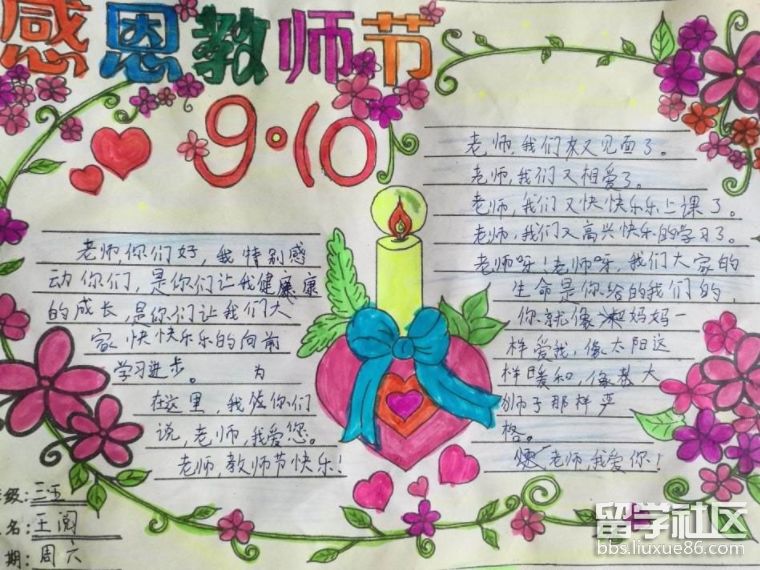 感恩教师节
9·10
老师,你们好,我特别感
动你们,是你们让我健康康
的成长,是你们让我们大
家快快乐乐的向前
学习进步。 为
在这里,我你们
说,老师,我爱您。
老师,教师节快乐!
老师,我们来又见面了。
老师,我们又相爱了。
老师,我们又快快乐乐上课了。
老师,我们又高兴快乐的学习了。
老师呀!老师呀,我们大家的
生命是你给的我们的,
你就像妈妈一
样爱我,像太阳这
样暖和,像大
师子那样严
格。
老师,我爱你!
级:三五
名:王阅
期:周六
留学社区
bbs.liuxue86.com